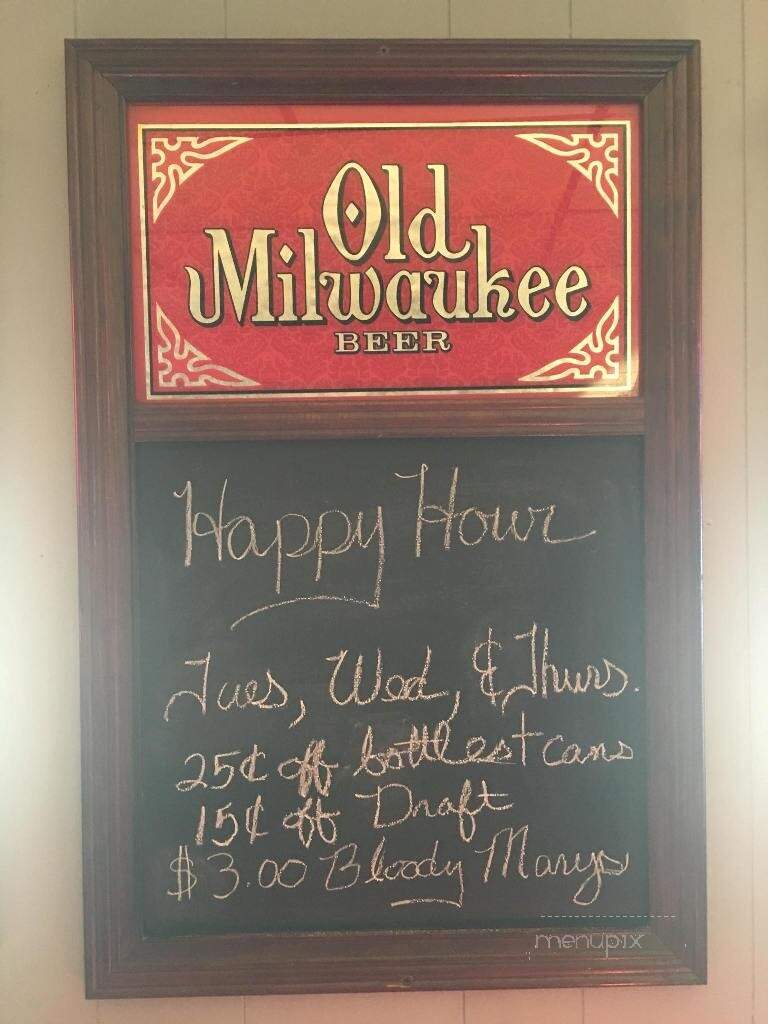 Old
Milwaukee
BEER
Happy Hour
Tues, Wed, & Thurs.
25¢ off bottles + cans
15¢ off Draft
$3.00 Bloody Marys
menupix